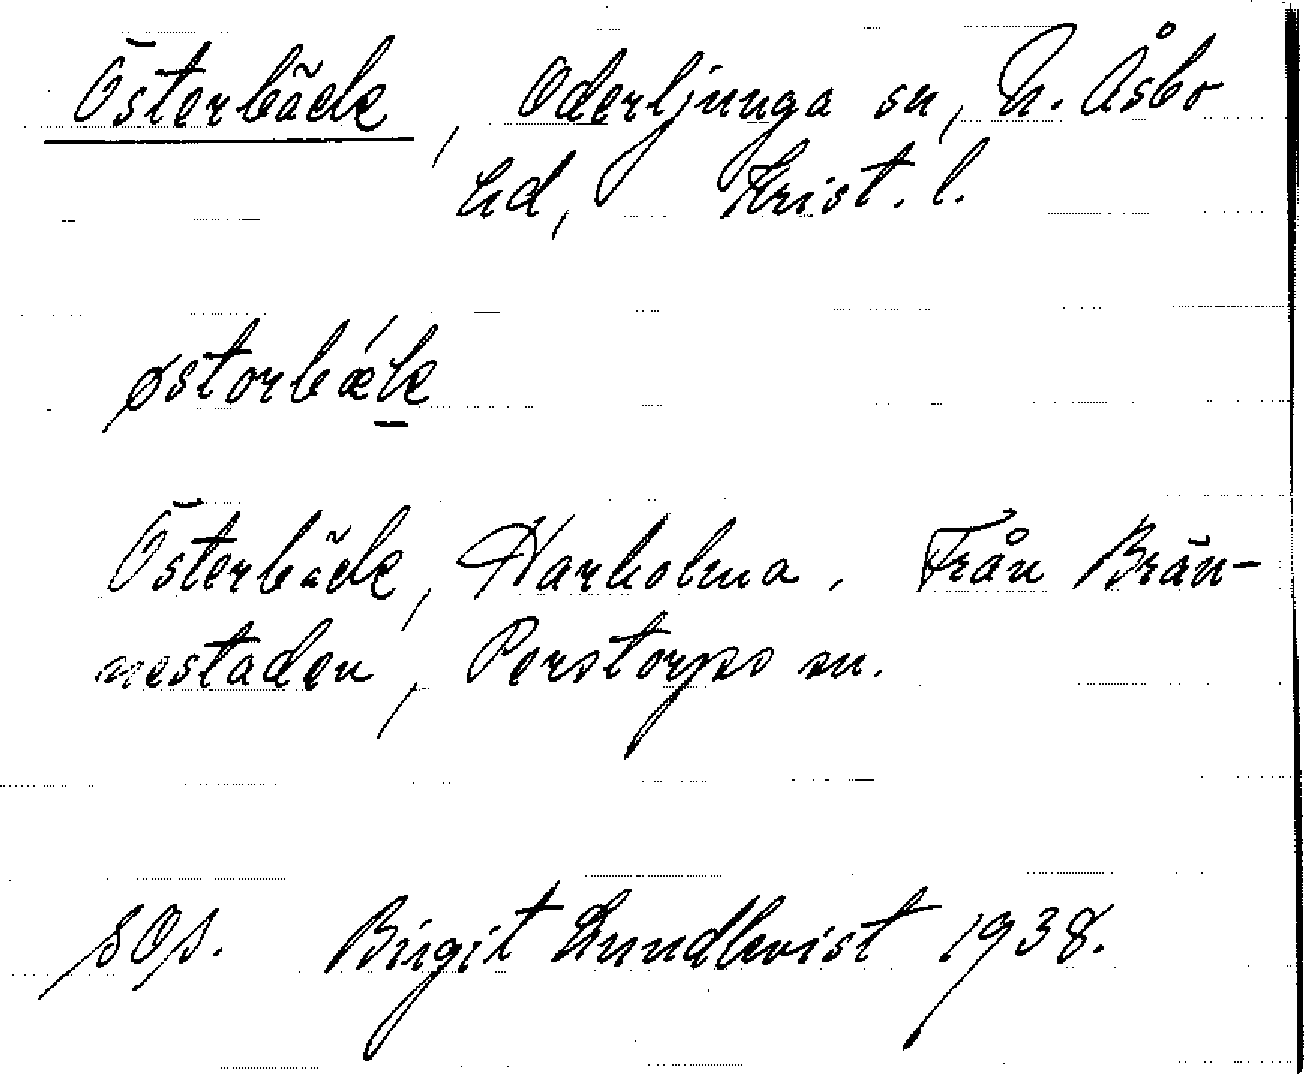 Österbäck, Oderljunga sn, N. Åsbo
hd, Krist. l.
østorbæ´k
Österbäck, Harholma. Från Brän-
nestaden, Perstorps sn.
sOp. Birgit Lundkvist 1938.